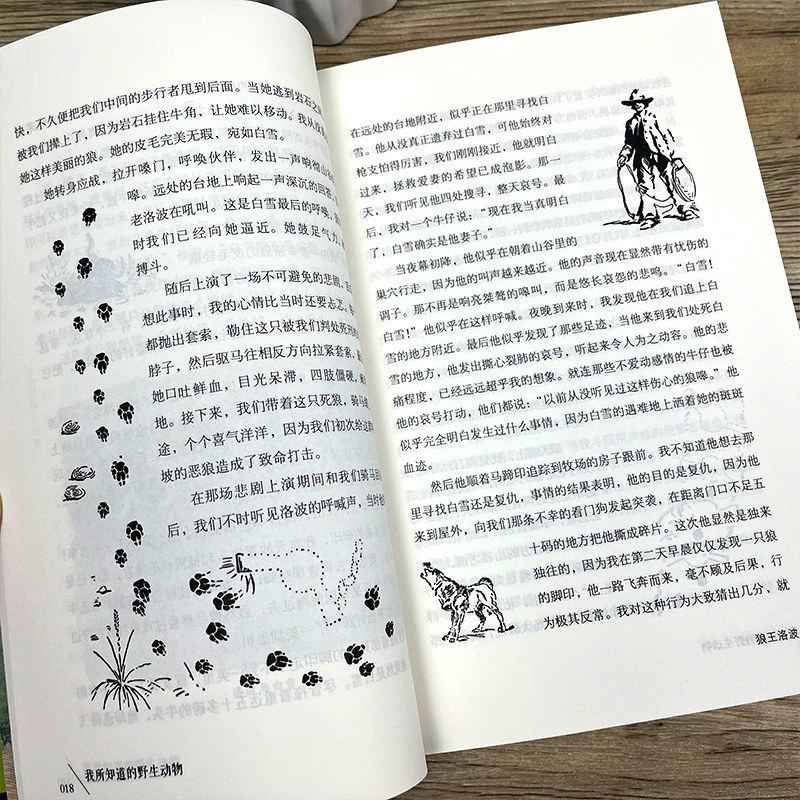 快，不久便把我们中间的步行者甩到后面。当她逃到岩石之
被我们撵上了，因为岩石挂住牛角，让她难以移动。我从没见
她这样美丽的狼。她的皮毛完美无瑕，宛如白雪。
她转身应战，拉开嗓门，呼唤伙伴，发出一声响彻山
嗥。远处的台地上响起一声深沉的回答
老洛波在吼叫。这是白雪最后的呼唤，
时我们已经向她逼近。她鼓足气力，
搏斗。
随后上演了一场不可避免的悲剧，
想此事时，我的心情比当时还要忐忑。
都抛出套索，勒住这只被我们判处死刑
脖子，然后驱马往相反方向拉紧套索，
她口吐鲜血，目光呆滞，四肢僵硬，
地。接下来，我们带着这只死狼，骑马
途，个个喜气洋洋，因为我们初次给这
坡的恶狼造成了致命打击。
在那场悲剧上演期间和我们骑马回
后，我们不时听见洛波的呼喊声，当时他
018
我所知道的野生动物
在远处的台地附近，似乎正在那里寻找白
雪。他从没真正遗弃过白雪，可他始终对
枪支怕得厉害，我们刚刚接近，他就明白
过来，拯救爱妻的希望已成泡影。那一
天，我们听见他四处搜寻，整天哀号。最
后，我对一个牛仔说：“现在我当真明白
了，白雪确实是他妻子。”
当夜幕初降，他似乎在朝着山谷里的
巢穴行走，因为他的叫声越来越近。他的声音现在显然带有忧伤的
调子。那不再是响亮桀骜的嗥叫，而是悠长哀怨的悲鸣。“白雪！
白雪！”他似乎在这样呼喊。夜晚到来时，我发现他在我们追上白
雪的地方附近。最后他似乎发现了那些足迹，当他来到我们处死白
雪的地方，他发出撕心裂肺的哀号，听起来令人为之动容。他的悲
痛程度，已经远远超乎我的想象。就连那些不爱动感情的牛仔也被
他的哀号打动，他们都说：“以前从没听见过这样伤心的狼嗥。”他
似乎完全明白发生过什么事情，因为白雪的遇难地上洒着她的斑斑
血迹。
然后他顺着马蹄印追踪到牧场的房子跟前。我不知道他想去那
里寻找白雪还是复仇，事情的结果表明，他的目的是复仇，因为他
来到屋外，向我们那条不幸的看门狗发起突袭，在距离门口不足五
十码的地方把他撕成碎片。这次他显然是独来
独往的，因为我在第二天早晨仅仅发现一只狼
的脚印，他一路飞奔而来，毫不顾及后果，行
为极其反常。我对这种行为大致猜出几分，就
狼王洛波